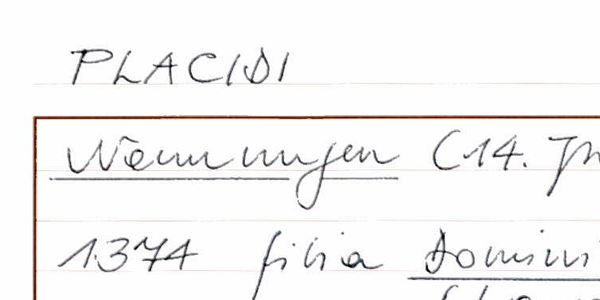 PLACIDI
Nennungen (14. Jh
1374 filia Domini